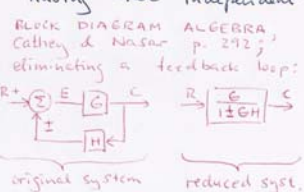 BLOCK DIAGRAM ALGEBRA,
Cathey & Nasar p. 292;
eliminating a feedback loop:
R + Σ E G C
±
H
R G / 1 ± GH C
original system reduced syst.